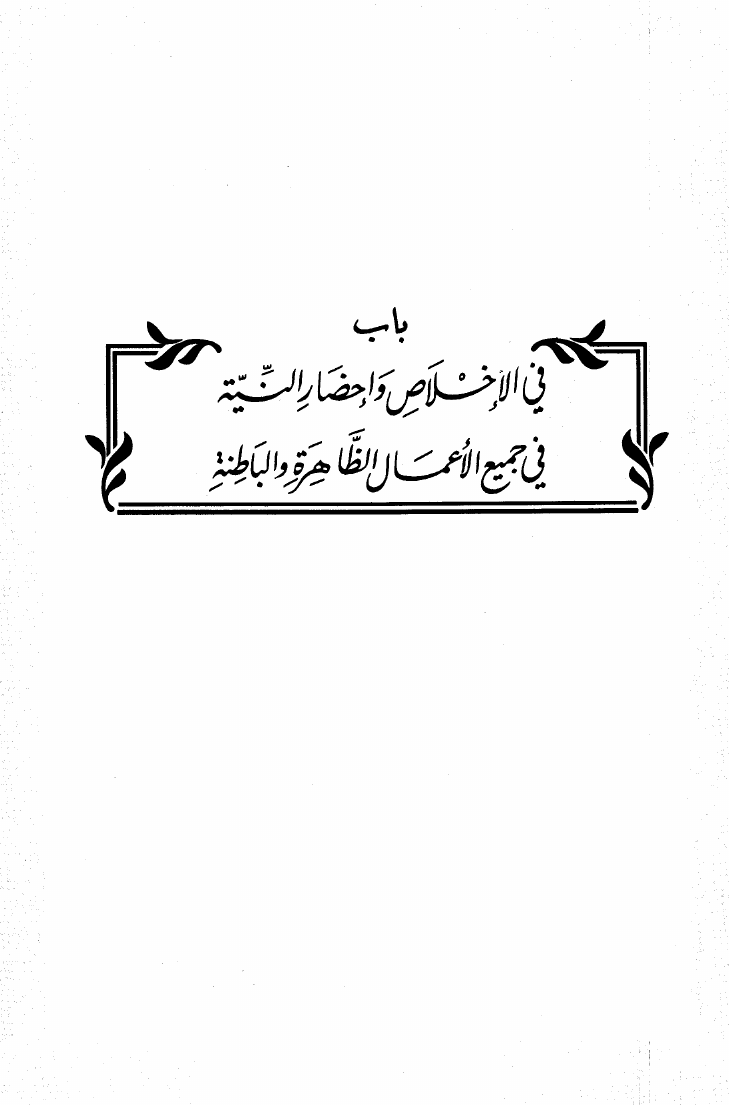 باب
في الإِخْلَاصِ وَإِحضَارِ النِّيَّة
في جَميع الأَعمَال الظَّاهِرَةِ والبَاطِنةِ